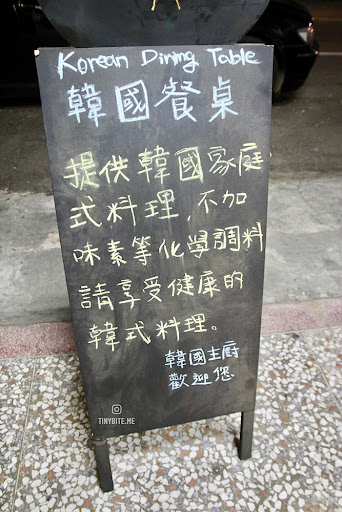 Korean Dining Table
韓國餐桌
提供韓國家庭
式料理,不加
味素等化學調料
請享受健康的
韓式料理。
韓國主廚
歡迎您
TINYBITE.ME